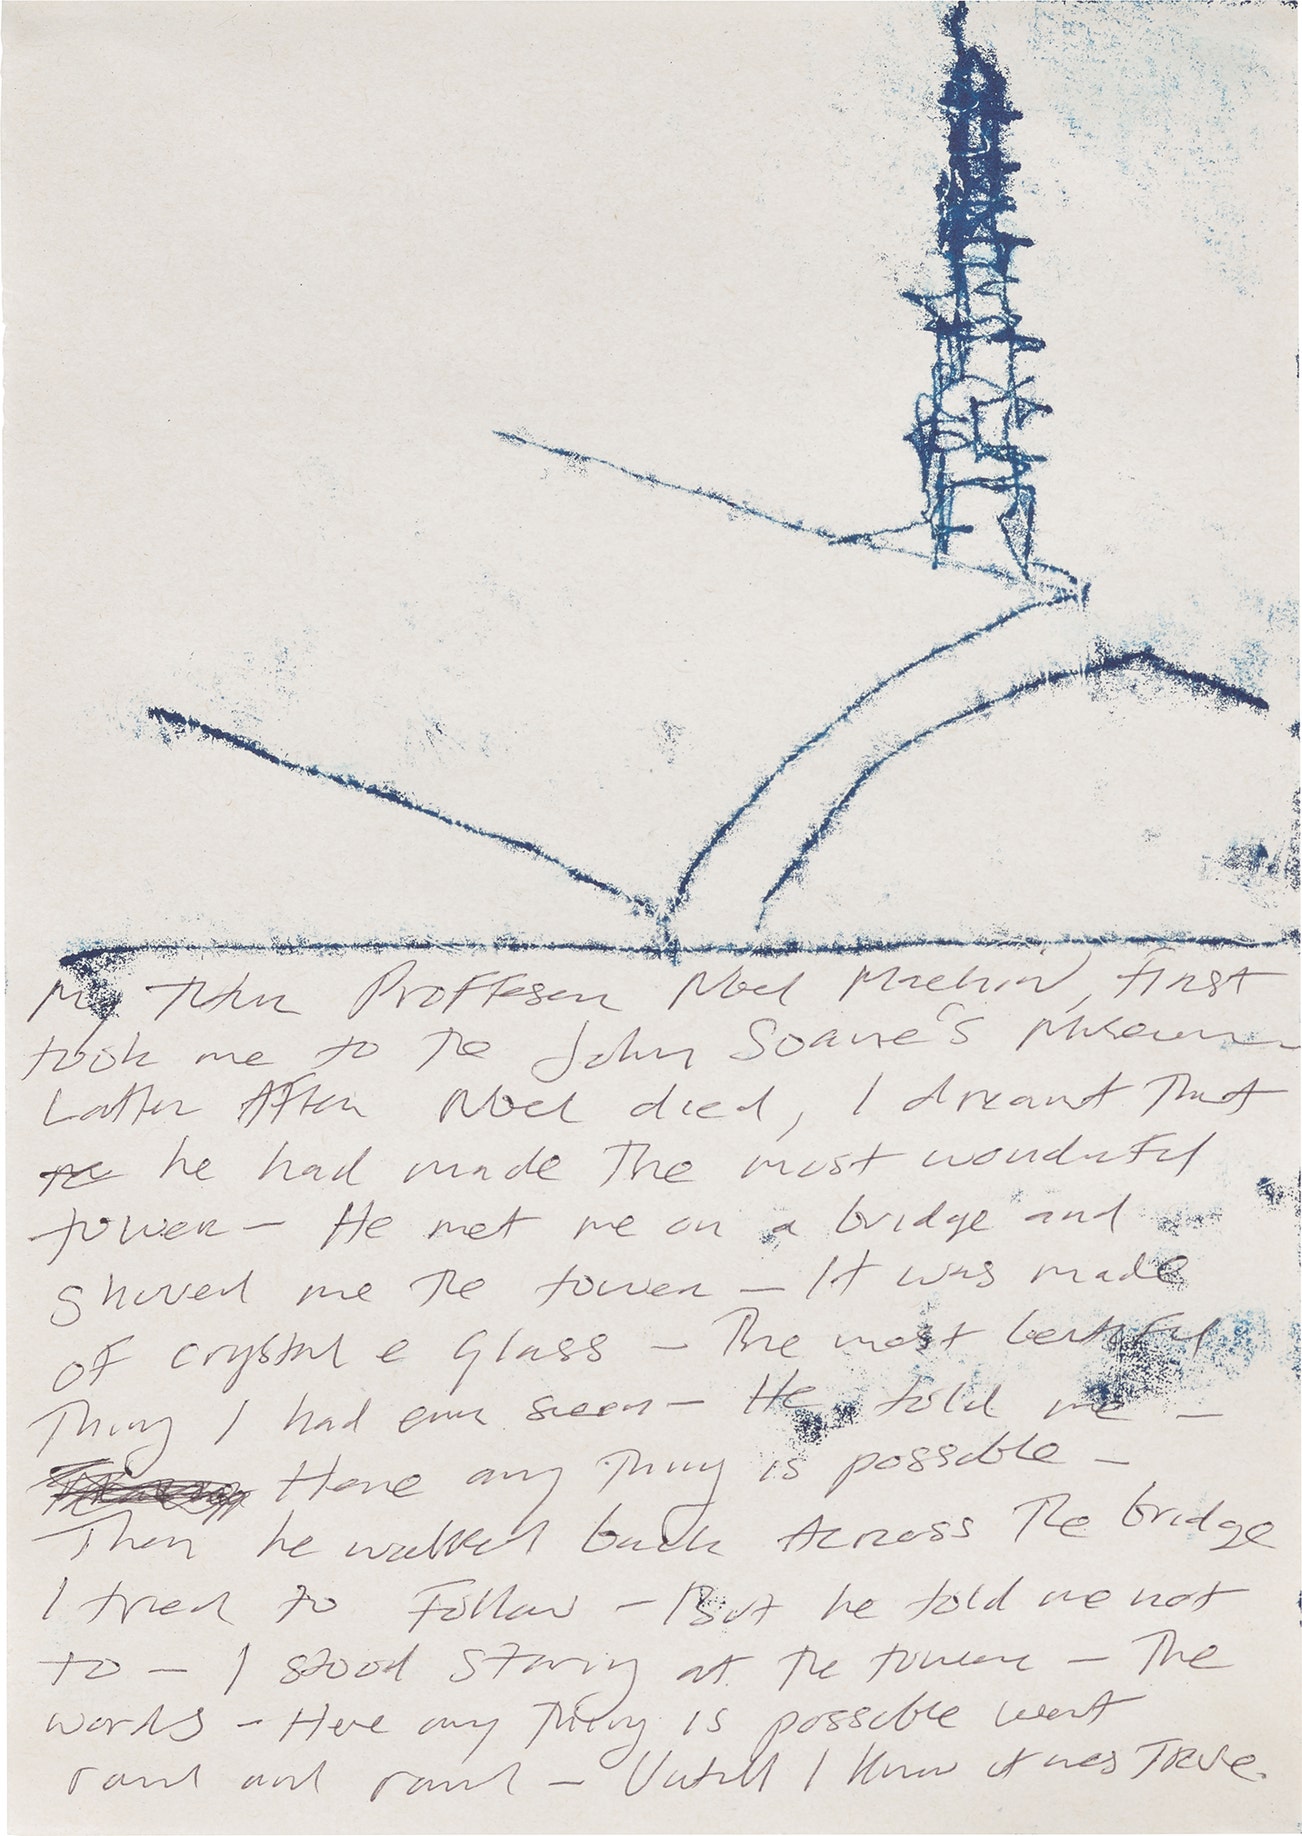 My Tutor Proffesor Noel Machin, first
took me to the John Soane's Museum
Latter After Noel died, I dreamt that
he had made the most wonderful
tower – He met me on a bridge and
showed me the tower – It was made
of crystal e Glass – The most beutiful
Thing I had ever seen – He told me –
Here any thing is possible –
Then he walked back Across The bridge
I tried to Follow – But he told me not
to – I stood staring at the tower – The
words – Here any Thing is possible went
round and round – Untill I knew it was True.